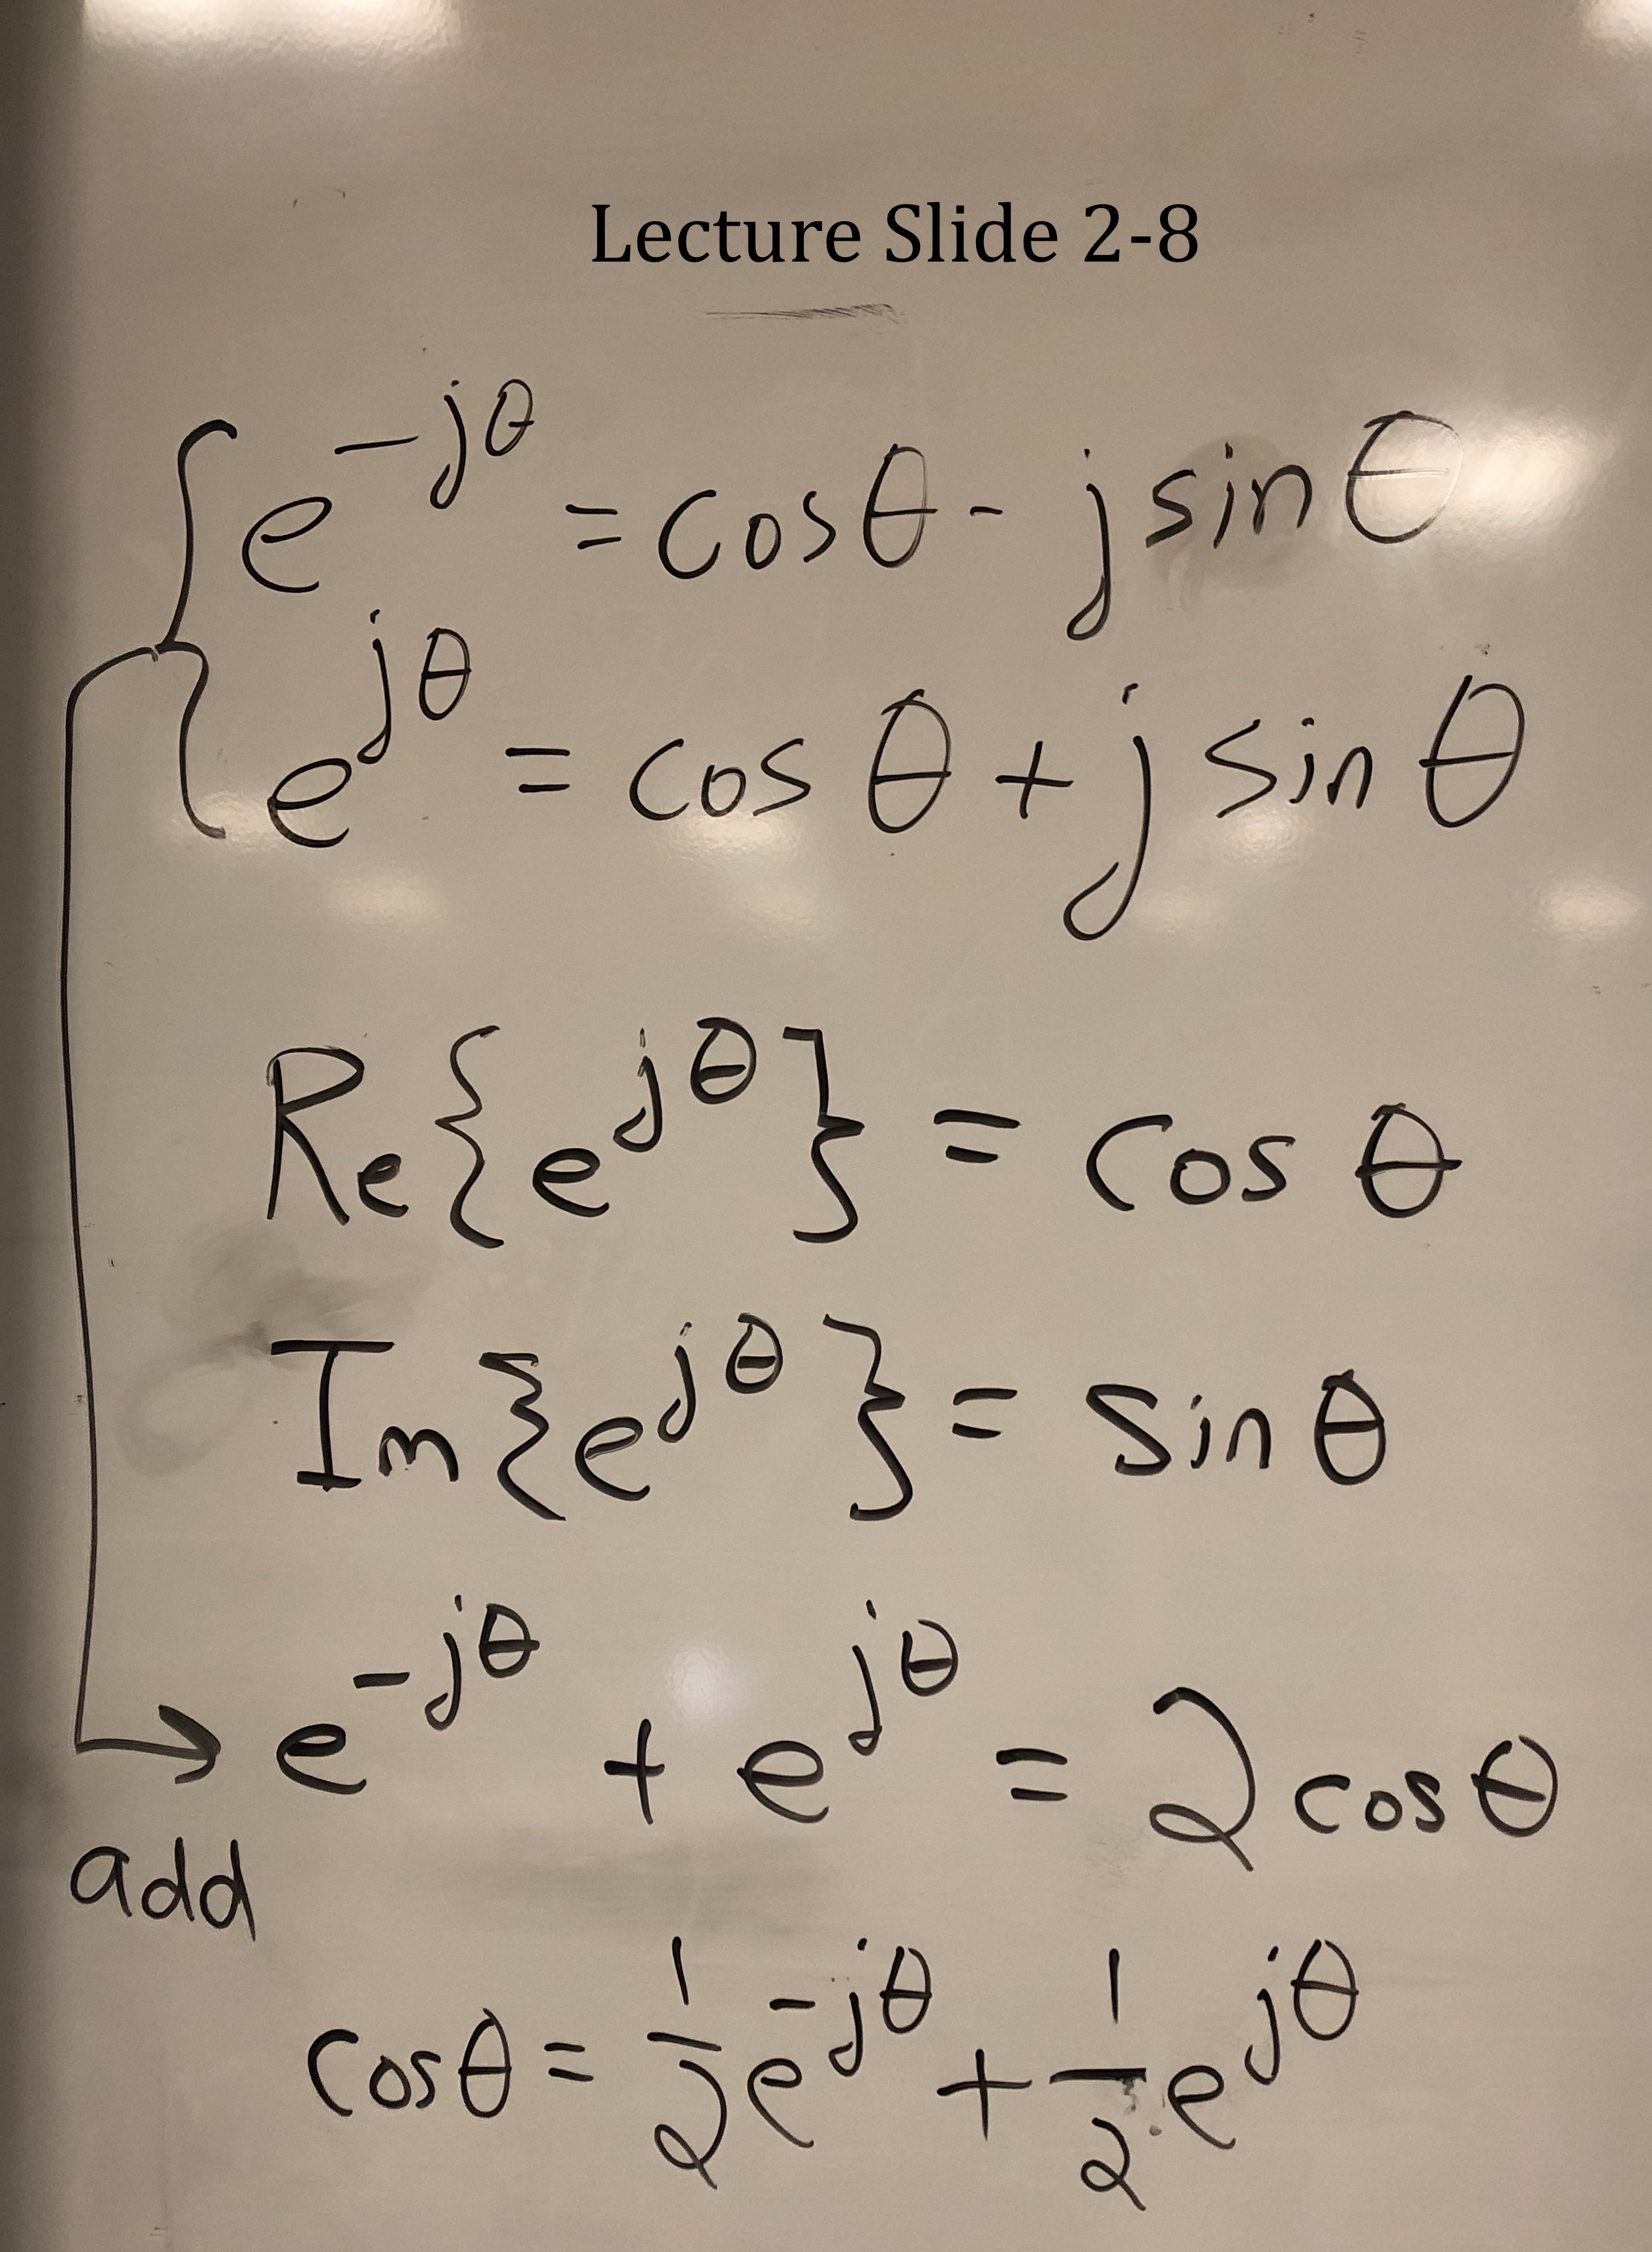 Lecture Slide 2-8
e^{-jθ} = cosθ - j sinθ
e^{jθ} = cos θ + j sin θ
Re{e^{jθ}} = cos θ
Im{e^{jθ}} = sin θ
e^{-jθ} + e^{jθ} = 2 cosθ
add
cosθ = \frac{1}{2} e^{-jθ} + \frac{1}{2} e^{jθ}